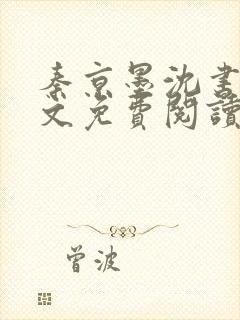 秦京墨沈書
文免費閱讀
曾波